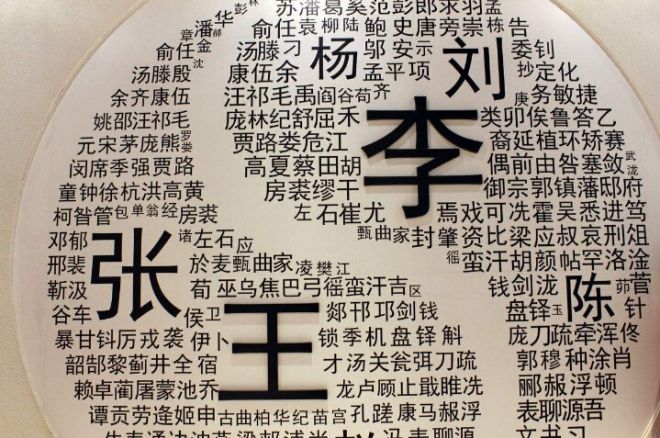 彭林
苏潘葛奚范彭郎求羽孟
潘华郝
俞任袁柳陆鲍史唐旁崇栋告
章金
俞任
汤滕刁
杨
邬安示
刘
委钊
沈
汤滕殷
康伍余
孟平项
抄定化
余齐康伍
汪祁毛禹阎谷荀齐
庚务敏捷
姚邵汪祁毛
庞林纪舒屈禾
李
类卯俟鲁答乙
元宋茅庞熊罗娄
贾路娄危江
裔延植环矫赛
闵席季强贾路
高夏蔡田胡
偶前由咎塞敛武泷
童钟徐杭洪高黄
房裘缪干
御宗郭镇藩邸府
柯昝管包单翁经房裘
左石崔尤
焉戏可冼霍吴悉进笃
邓郁
张
诸左石应
甄曲家封肇资比梁应叔哀刑俎
邢裴
於麦甄曲家凌樊江
徭蛮汗胡颜帖罕洛淦
靳汲
荀巫乌焦巴弓徭蛮汗吉区
钱剑泷
陈
茆菅
谷车
侯卫
王
郯邗邛剑钱
盘铎玉
针
暴甘钭厉戎袭伊卜
锁季机盘铎斛
庞刀疏牵浑佟
韶郜黎蓟井全宿
才汤关瓮弭刀疏
郭穆种涂肖
赖卓蔺屠蒙池乔
龙卢顾止戢睢冼
郦郝浮顿
谭贡劳逄姬申古曲柏华纪苗宫孔蹉康马郝浮
表聊源吾
冯表聊源
文书习